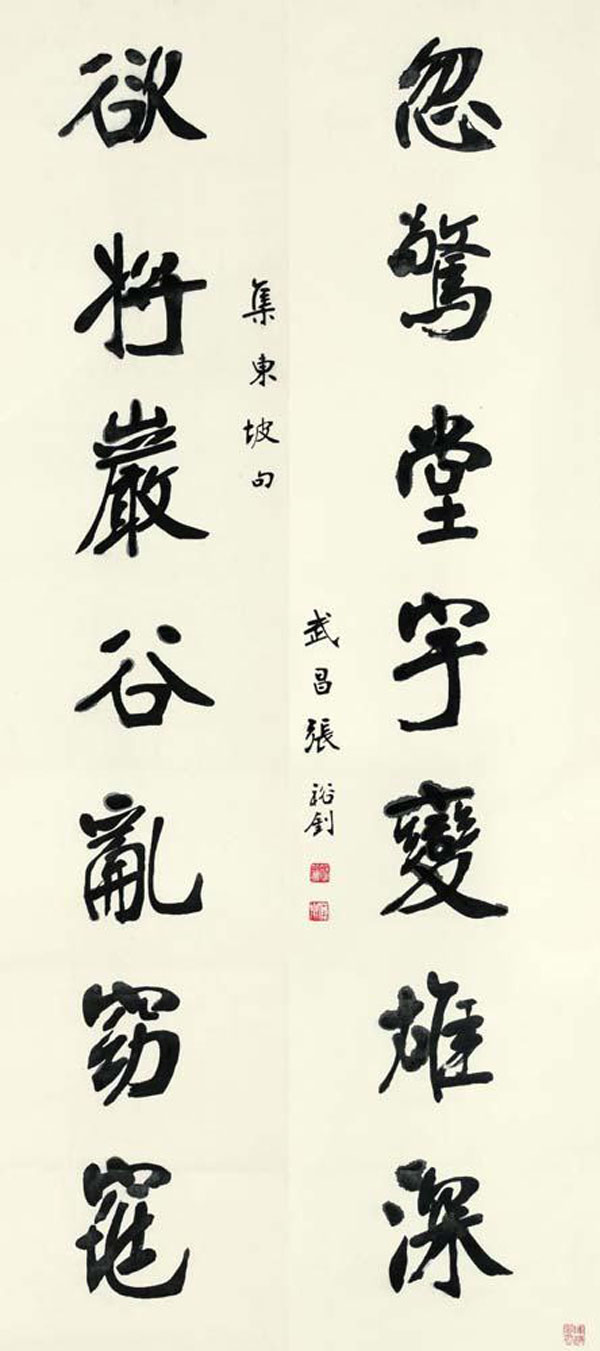 忽驚堂宇變雄深
武昌張裕釗
集東坡句
欲將巖谷亂窈窕